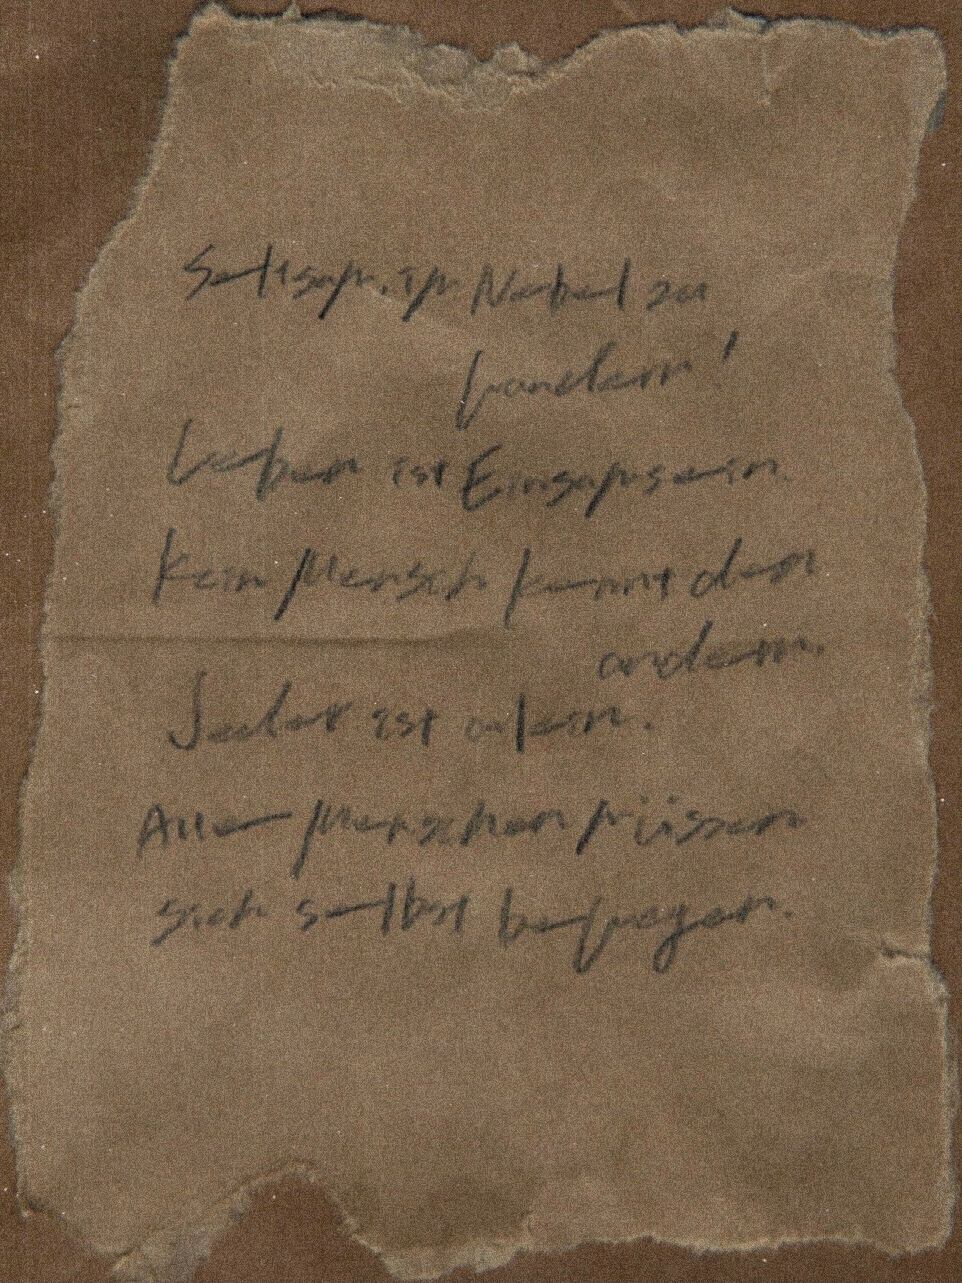 Seltsam, im Nebel zu
wandern!
Leben ist Einsamsein.
Kein Mensch kennt den
andern.
Jeder ist allein.
Alle Menschen müssen
sich selbst bewegen.